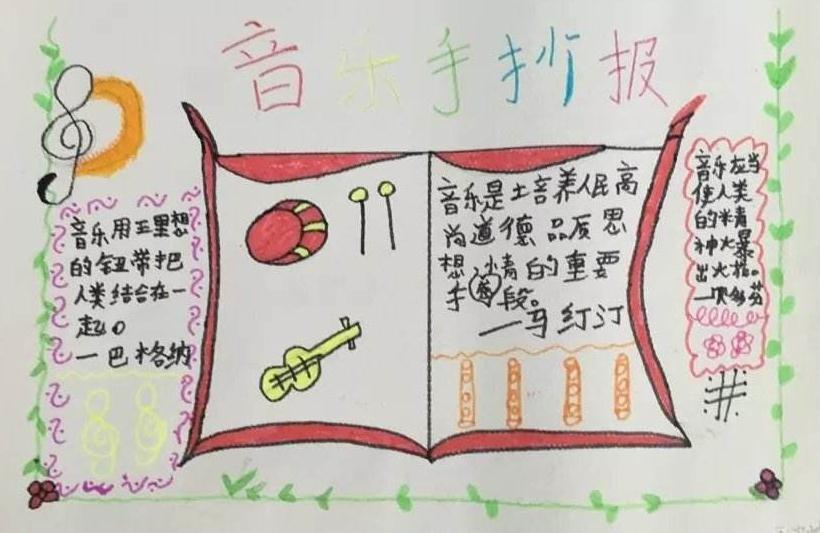 音乐手抄报
音乐用王里想
的钮带把
人类结合在一
起。
一巴格纳
音乐是土培养人民高
尚道德品质思
想情的重要
手段。
——马红汀
音乐应当
使人类
的精
神火暴
出火花。